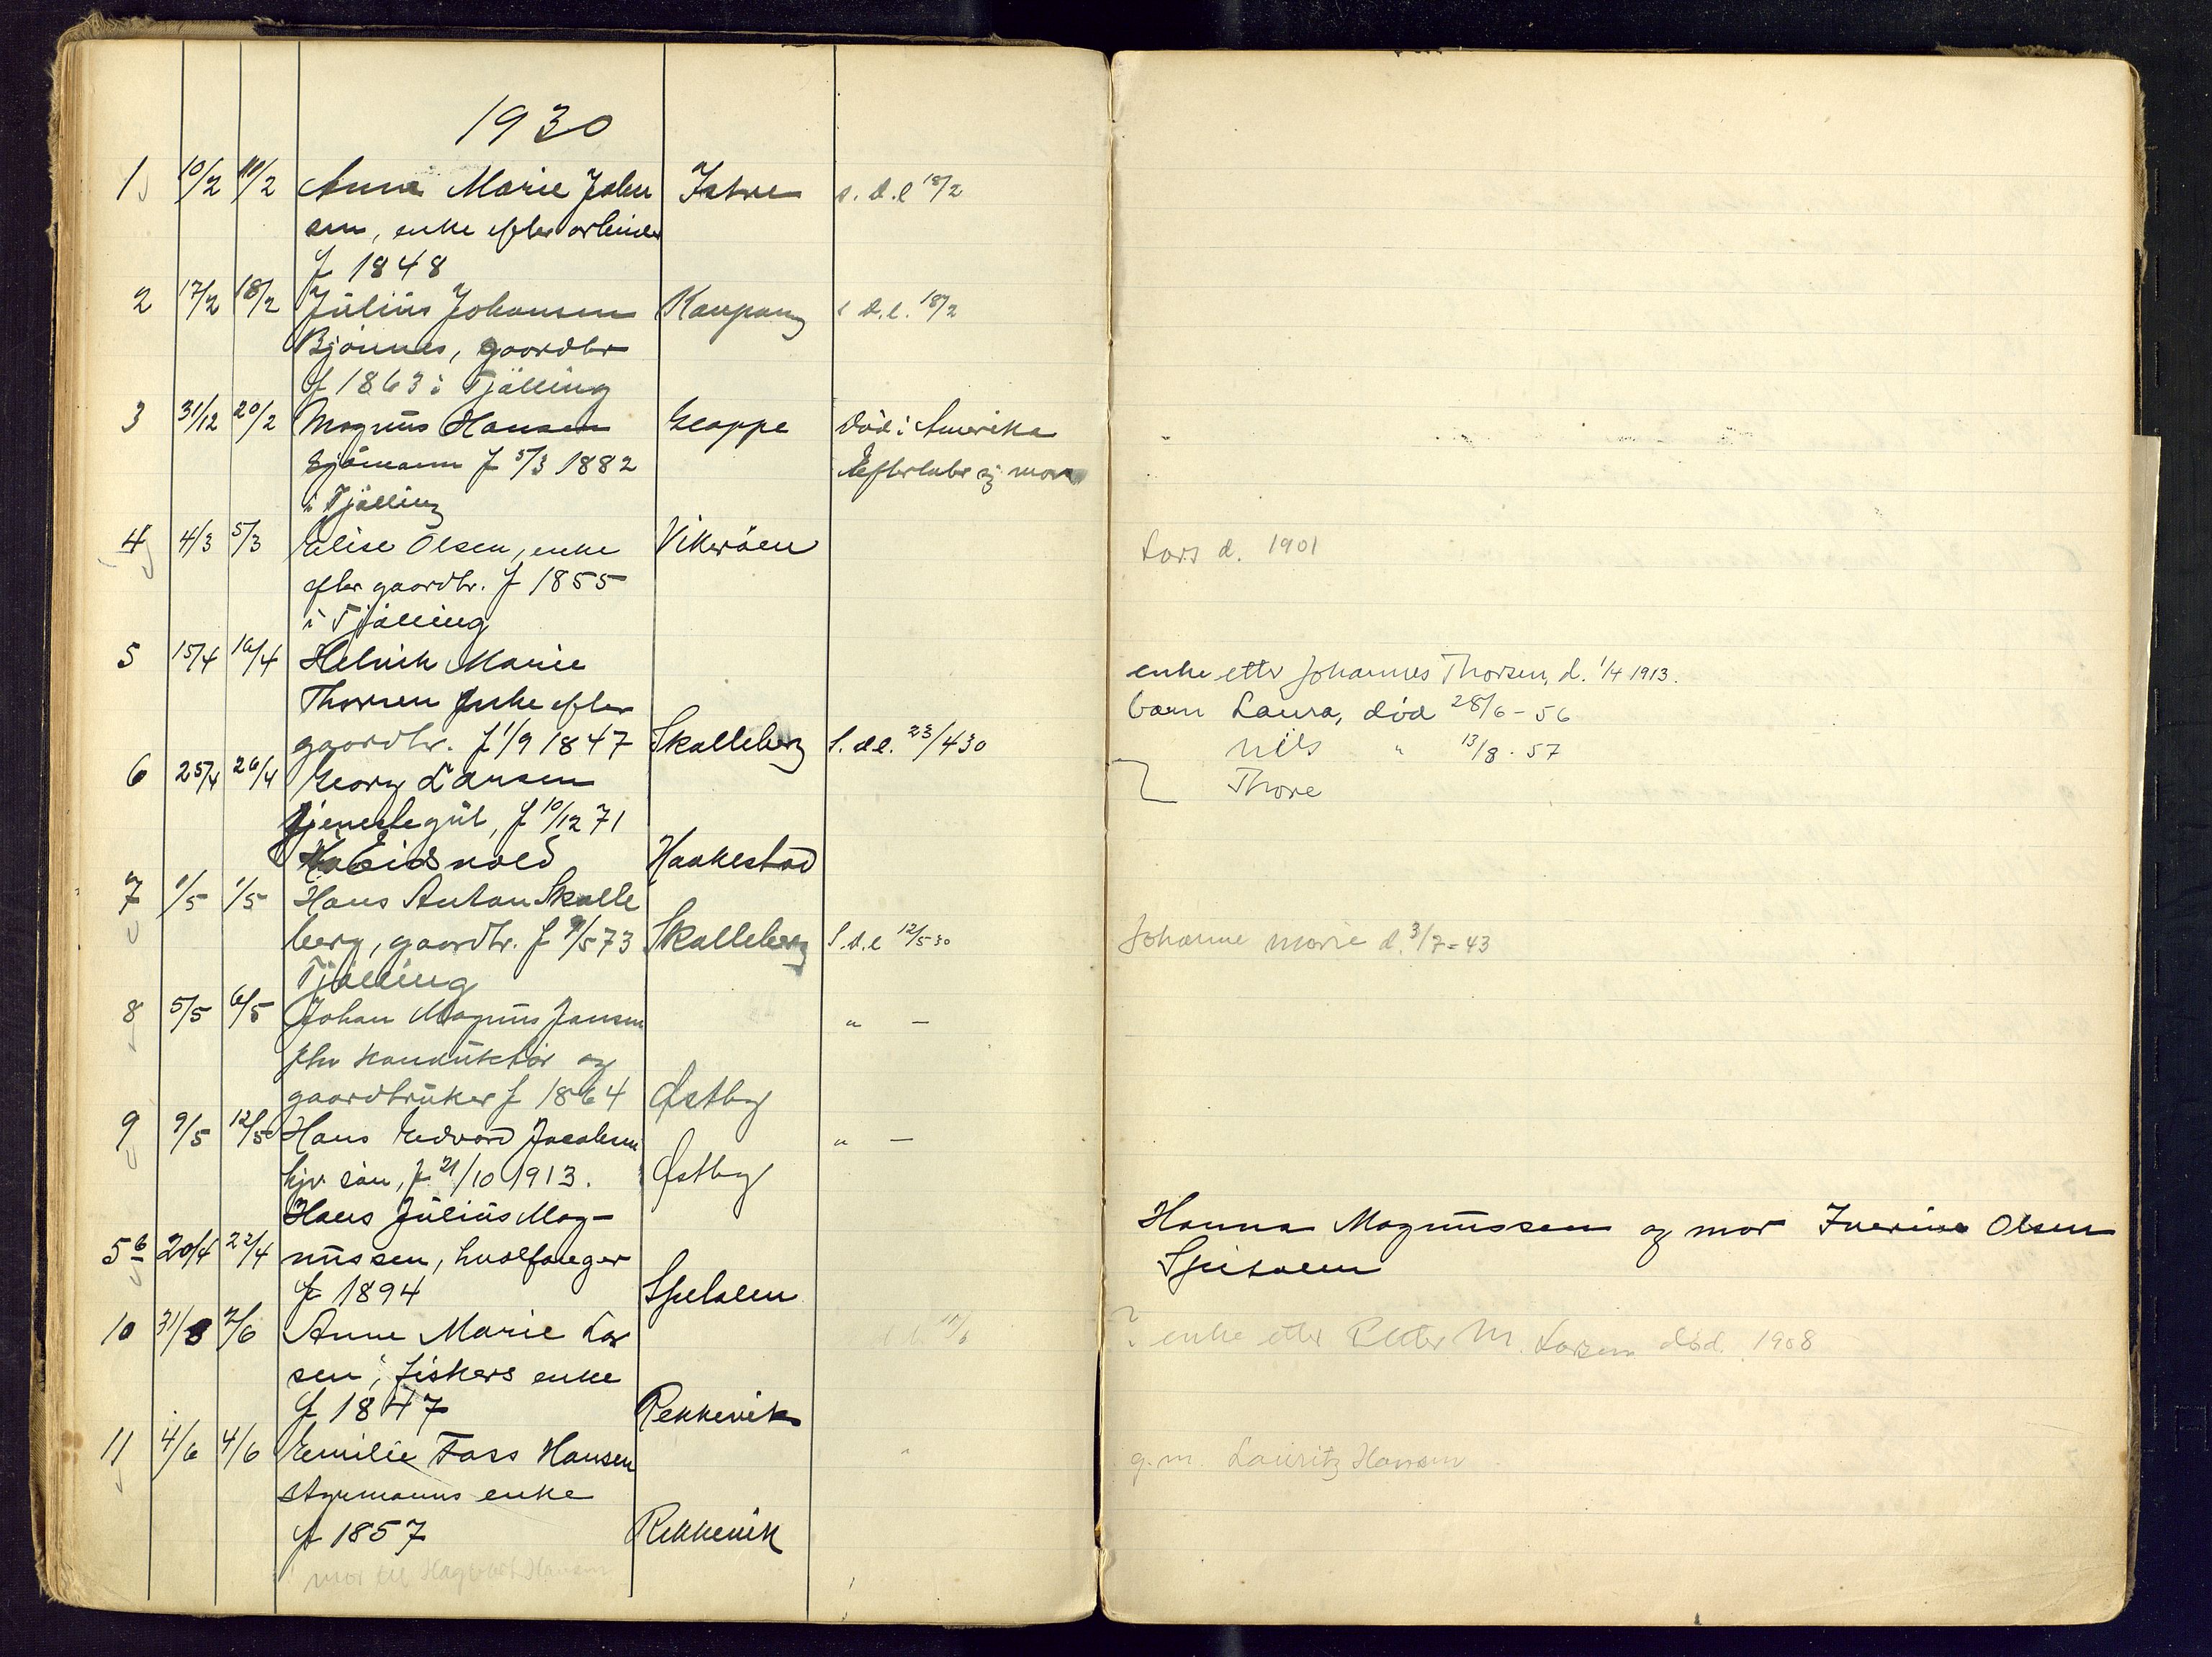 1930
1 10/2 11/2 Anne Marie John Istre s. d. l 18/2
sen, enke efter arbeider
f 1848
2 17/2 18/2 Julius Johansen Kaupang s d. l. 18/2
Bjønnes, gaardbr
f 1863 i Tjölling
3 31/12 20/2 Magnus Hansen Gloppe Död i Amerika
Sjömann f 5/3 1882 Efterlater sig mor
i Tjölling
4 4/3 5/3 Elise Olsen, enke Vikerøen Lars d. 1901
efter gaardbr. f 1855
i Tjölling
5 15/4 16/4 Helvik Marie
enke etter Johannes Thorsen, d. 1/4 1913.
Thorsen enke efter
barn Laura, död 28/6-56
gaardbr. f 1/9 1847 Skalleberg S. d l. 23/4 30
Nils " 13/8-57
6 25/4 26/4 Georg Larsen
Thore
tjenestegut, f 10/12 71
Eidsvold Haakestad
7 1/5 1/5 Hans Anton Skalle
berg, gaardbr. f 9/5 73 Skalleberg S. d. l 12/5 30 Johanne Marie d. 3/7-43
Tjölling
8 5/5 6/5 Johan Magnus Jansen " —
fhv konduktør og
gaardbruker f 1864 Østby
9 9/5 12/5 Hans Edvard Jacobsen " —
hjv søn, f 21/10 1913. Østby
Hans Julius Mag-
Hanna Magnussen og mor Iverine Olsen
5b 20/4 22/4 nussen, hvalfanger
Sjutolen
f 1894
10 31/8 2/6 Anne Marie Lar
? enke etter Peter M. Larsen död. 1908
sen, fiskers enke
f 1847 Rekkevik
11 4/6 4/6 Emilie Foss Hansen "
g.m. Lauritz Hansen
styrmanns enke
f 1857 Rekkevik
mor til Hagbart Hansen